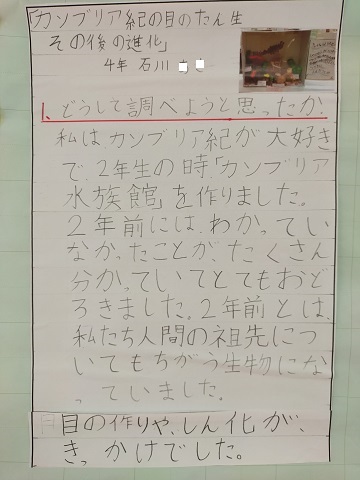 「カンブリア紀の目のたん生
その後の進化」
4年 石川
1、どうして調べようと思ったか、
私は、カンブリア紀が大好き
で、2年生の時、「カンブリア
水族館」を作りました。
2年前には、わかってい
なかったことが、たくさん
分かっていてとてもおど
ろきました。2年前とは、
私たち人間の祖先につ
いてもちがう生物にな
っていました。
目の作りや、しん化が、
きっかけでした。